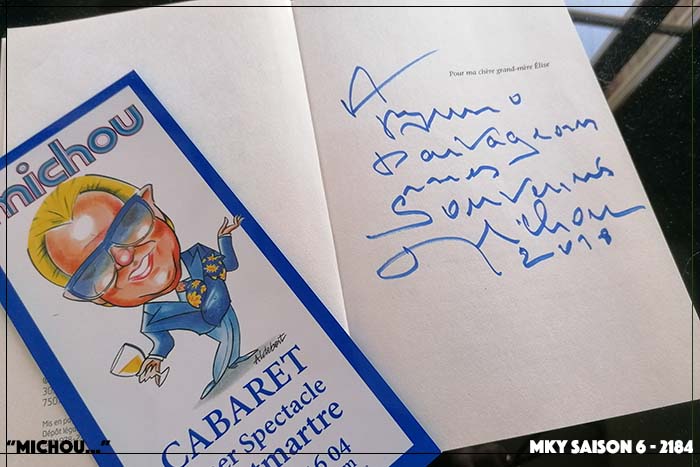 michou
Aldebert
CABARET
er Spectacle
tmartre
6 04
m
750
Mis en pa
Dépôt léga
Pour ma chère grand-mère Élise
A Bruno
Partageons
mes
Souvenirs
Michou
2018
"MICHOU..."
MKY SAISON 6 - 2184